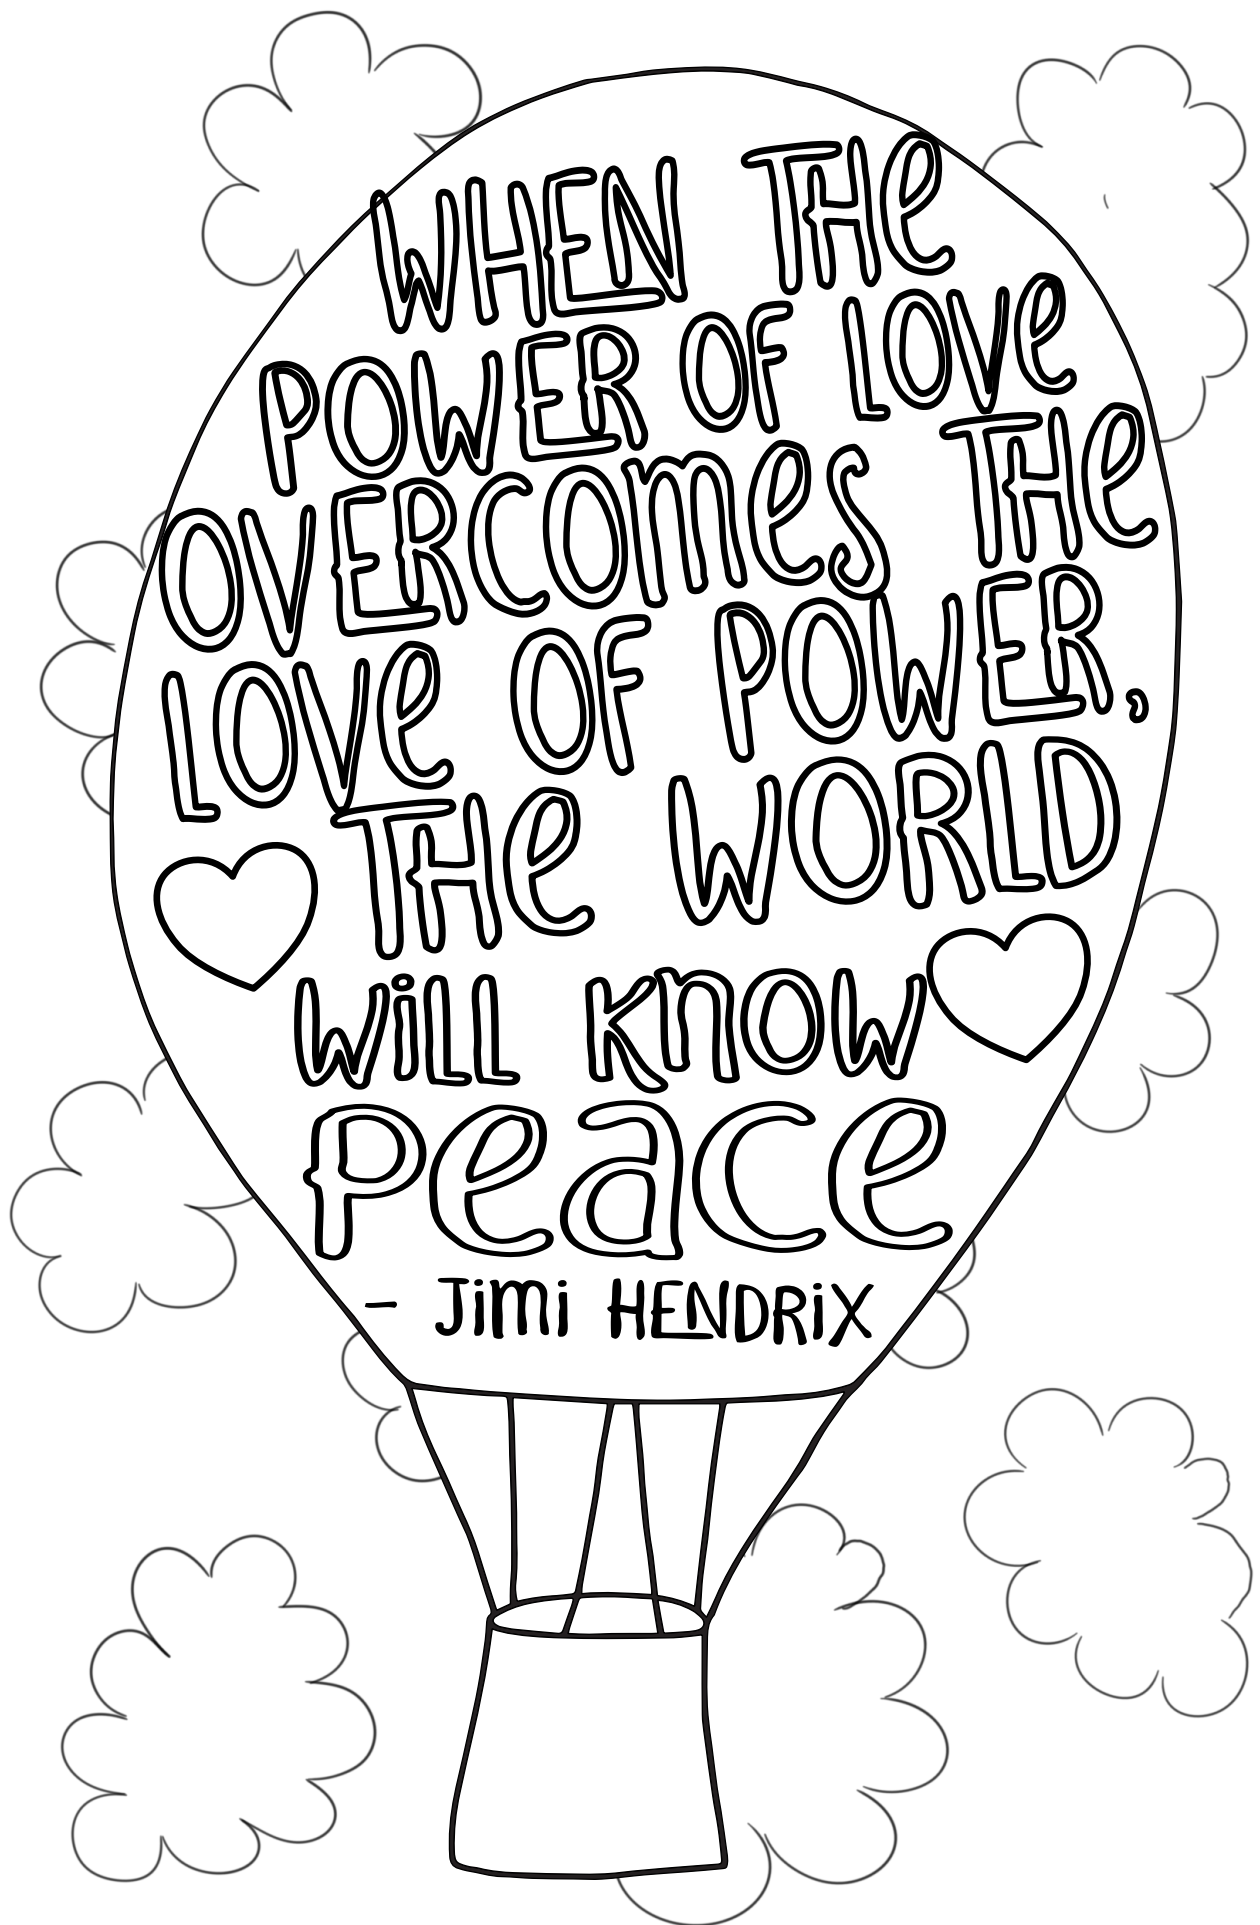 WHEN THE
POWER OF LOVE
OVERCOMES THE
LOVE OF POWER,
THE WORLD
WiLL KNOW
Peace
- JiMi HENDRiX